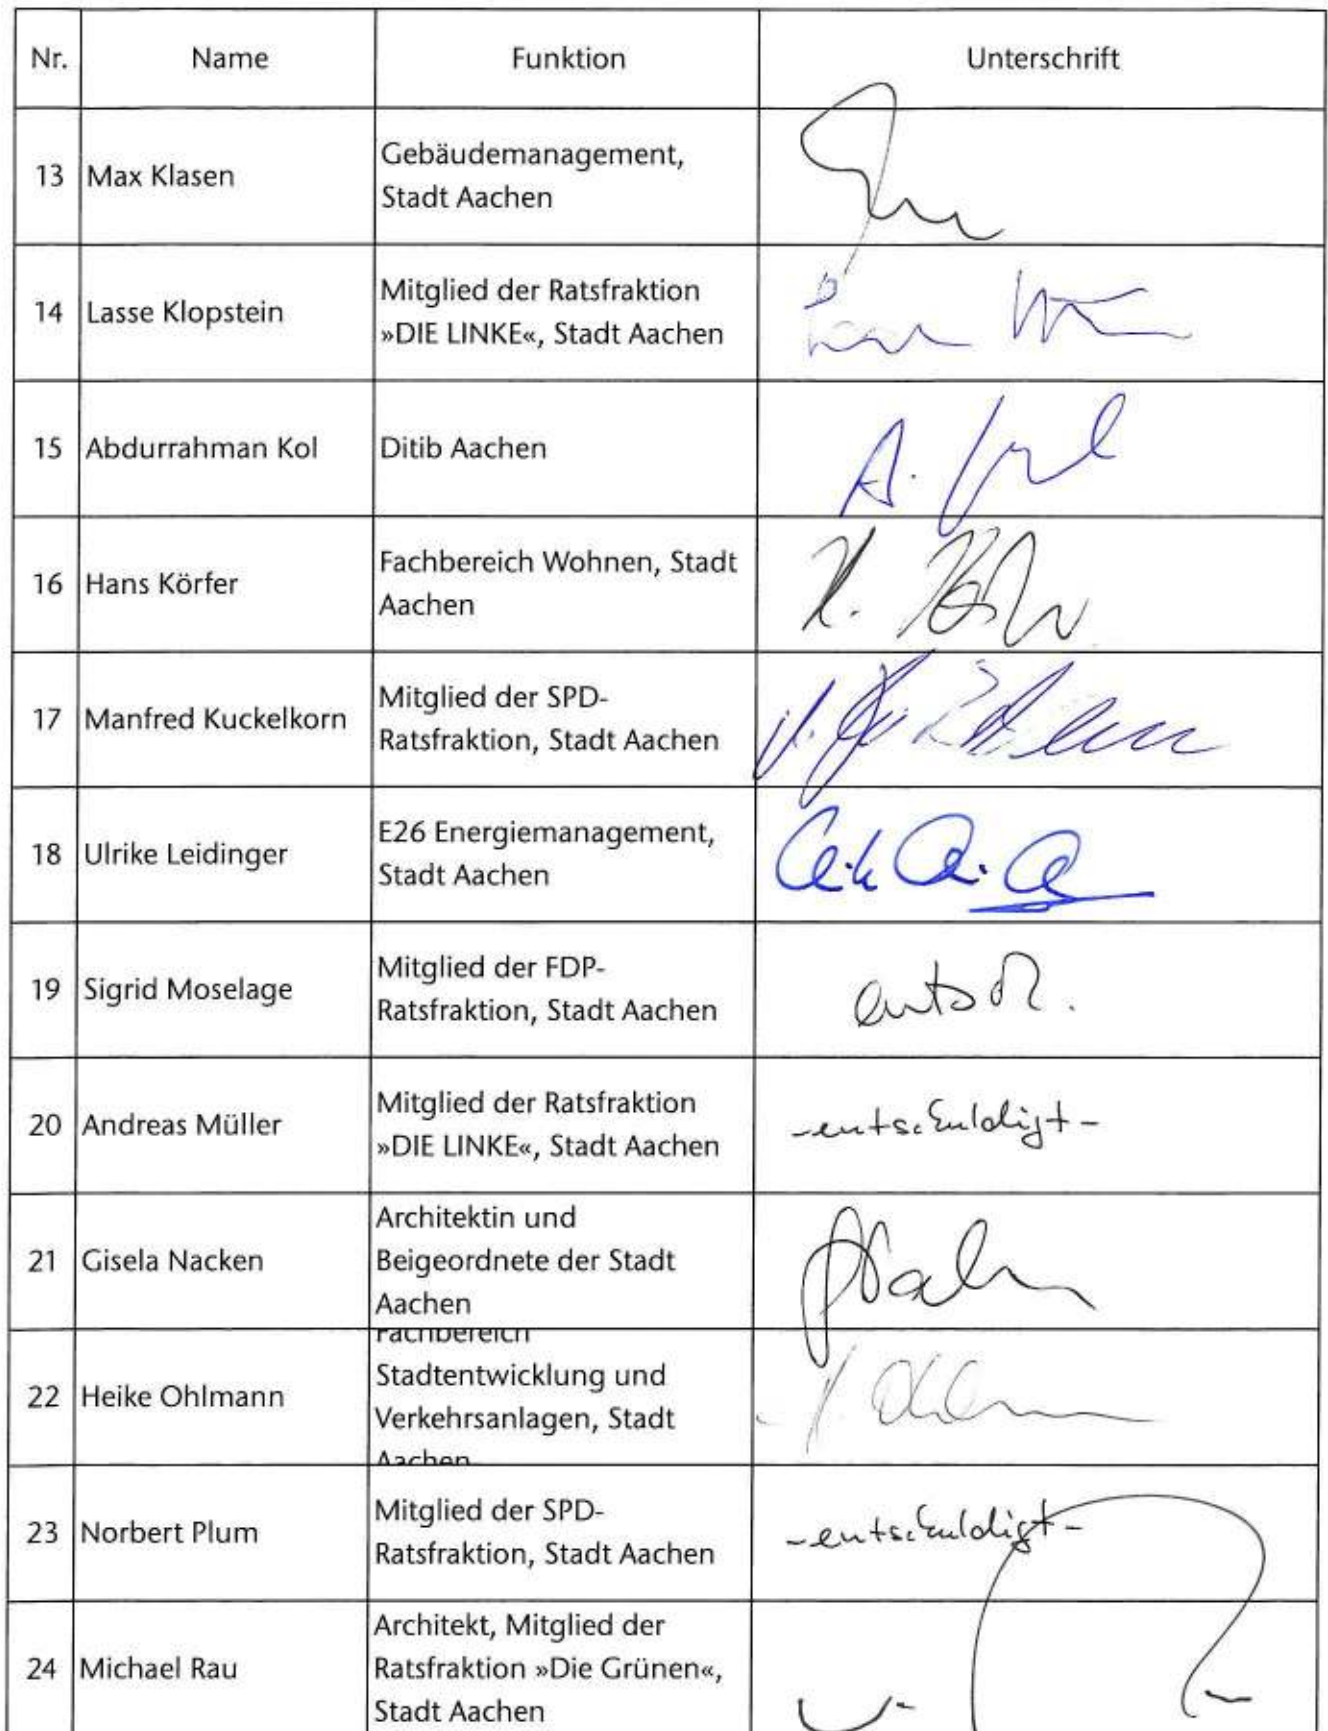 Nr. Name Funktion Unterschrift
13 Max Klasen Gebäudemanagement,
Stadt Aachen
14 Lasse Klopstein Mitglied der Ratsfraktion
»DIE LINKE«, Stadt Aachen
15 Abdurrahman Kol Ditib Aachen A.
16 Hans Körfer Fachbereich Wohnen, Stadt
Aachen
17 Manfred Kuckelkorn Mitglied der SPD-
Ratsfraktion, Stadt Aachen
18 Ulrike Leidinger E26 Energiemanagement,
Stadt Aachen
19 Sigrid Moselage Mitglied der FDP-
Ratsfraktion, Stadt Aachen entsch.
20 Andreas Müller Mitglied der Ratsfraktion
»DIE LINKE«, Stadt Aachen -entschuldigt-
21 Gisela Nacken Architektin und
Beigeordnete der Stadt
Aachen
22 Heike Ohlmann Fachbereich
Stadtentwicklung und
Verkehrsanlagen, Stadt
Aachen
23 Norbert Plum Mitglied der SPD-
Ratsfraktion, Stadt Aachen -entschuldigt-
24 Michael Rau Architekt, Mitglied der
Ratsfraktion »Die Grünen«,
Stadt Aachen